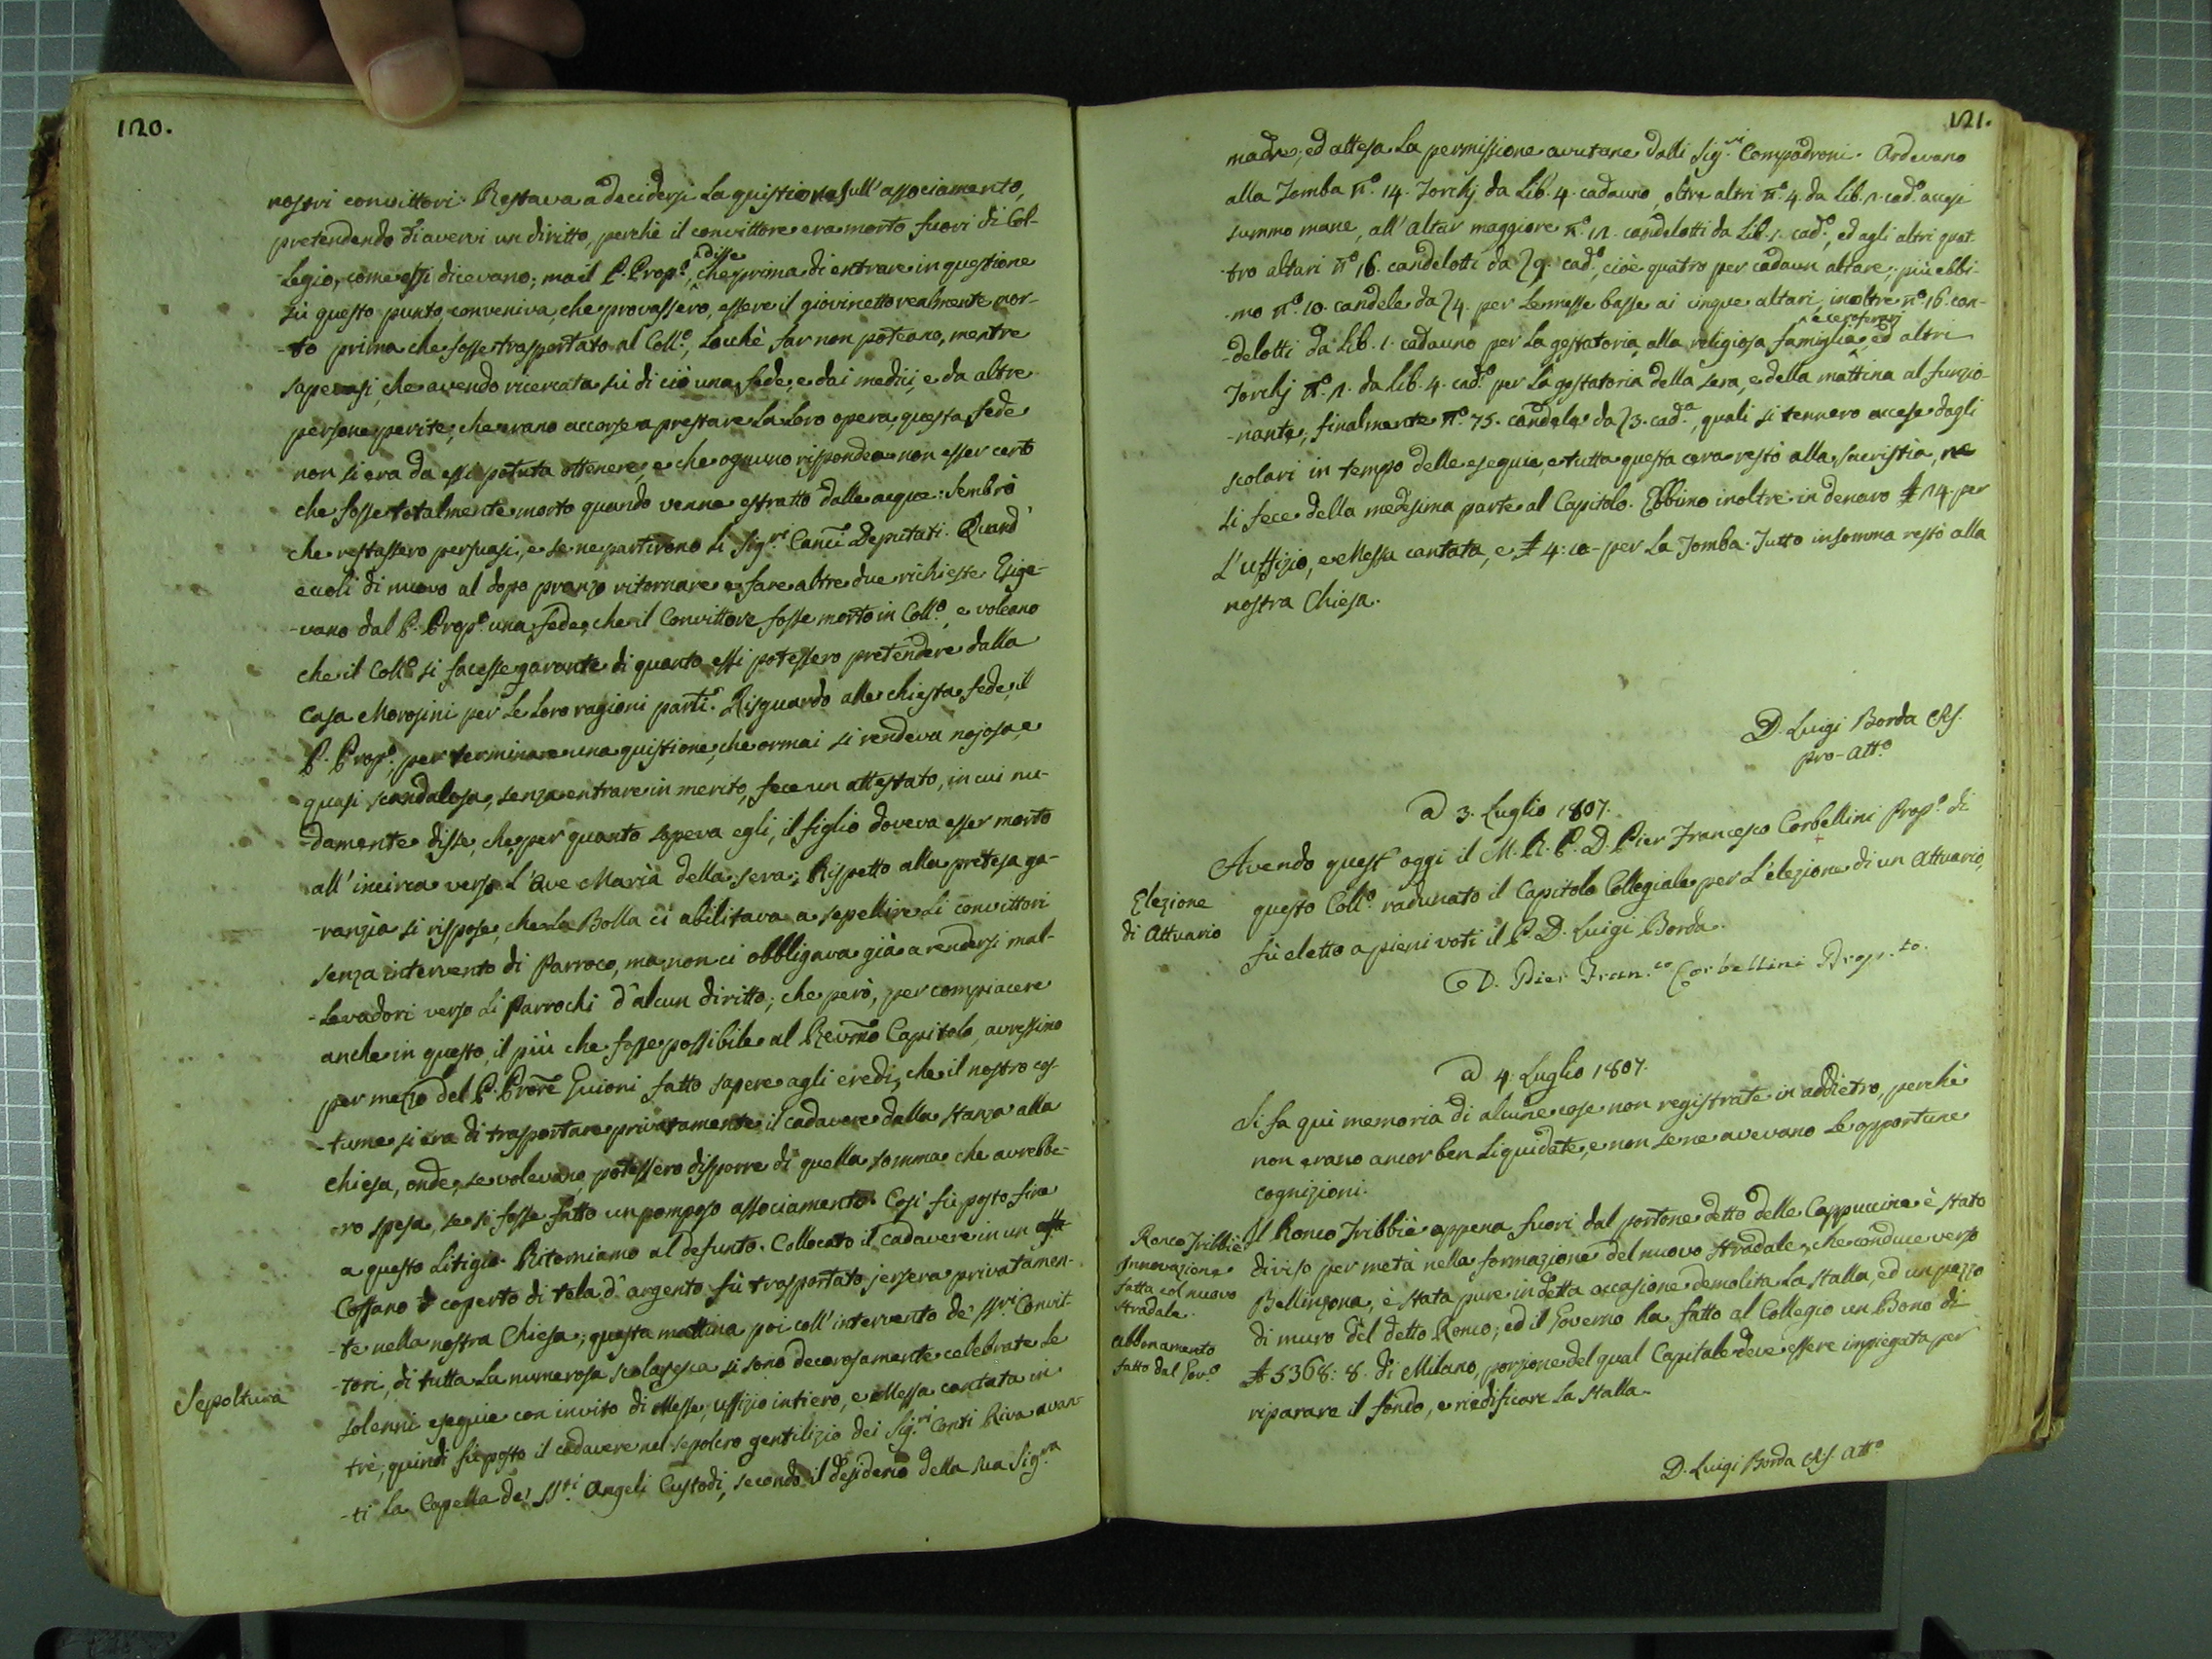 120.
nostri convittori. Restava a decidersi la quistione sull'associamento,
pretendendo di avervi un diritto, perchè il convittore era morto fuori di Col-
-legio, come essi dicevano; ma il P. Prop.o, disse che prima di entrare in questione
sù questo punto, conveniva, che provassero, essere il giovinetto realmente mor-
-to prima che fosse trasportato al Coll.o, locchè far non poteano, mentre
sapevasi, che avendo ricercata sù di ciò una fede, e dai medici, e da altre
persone perite, che erano accorse a prestare la loro opera, questa fede
non si era da essi potuta ottenere, e che ognuno rispondea non esser certo
che fosse totalmente morto quando venne estratto dalle acque: Sembrò
che restassero persuasi, e se ne partirono li Sig.ri Canci Deputati. Quand'
eccoli di nuovo al dopo pranzo ritornare e fare altre due richieste. Esige-
-vano dal P. Prop.o una fede, che il Convittore fosse morto in Coll.o, e voleano
che il Coll.o si facesse garante di quanto essi potessero pretendere dalla
Casa Morosini per le loro ragioni parti. Risguardo alla chiesta fede, il
P. Prop.o, per terminare una quistione, che ormai si rendeva nojosa, e
quasi scandalosa, senza entrare in merito, fece un attestato, in cui nu-
-damente disse, che per quanto sapeva egli, il figlio doveva esser morto
all'incirca verso l'Ave Maria della sera; Rispetto alla pretesa ga-
-ranzia si rispose, che la Bolla ci abilitava a sepellire li convittori
senza intervento di Parroco, ma non ci obbligava già a rendersi mal-
-levadori verso li Parrochi d'alcun diritto; che però, per compiacere
anche in questo, il più che fosse possibile al Revmo Capitolo, avressimo
per mezzo del P. Prore Guioni fatto sapere agli eredi, che il nostro cos-
-tume si era di trasportare privatamente il cadavere dalla stanza alla
chiesa, onde, se volevano, potessero disporre di quella somma che avrebbe-
-ro spesa, se si fosse fatto un pomposo associamento. Così fù posto fine
a questo litigio. Ritorniamo al defunto. Collocato il cadavere in un
Cossano coperto di tela d'argento fù trasportato jersera privatamen-
-te nella nostra Chiesa; questa mattina poi coll'intervento de' SS.ri Convit-
-tori, di tutta la numerosa scolaresca si sono decorosamente celebrate le
Sepoltura
solenni esequie con invito di Messe, uffizio intiero, e Messa cantata in
trè, quindi fù posto il cadavere nel sepolcro gentilizio dei Sig.ri Conti Riva avan-
-ti la Capella de' SS.ti Angeli Custodi, secondo il desiderio della sua Sig.ra
121.
madre, ed attesa la permissione avutane dalli Sig.ri Compadroni. Ardevano
alla Tomba n.o 14. Torchj da Lib. 4. cadauno, oltre altri n.o 4. da Lib. 2. cad.o accesi
summo mane, all'altar maggiore n.o 12. candelotti da Lib. 1. cad.o, ed agli altri quat-
-tro altari n.o 16. candelotti da 9. cad.o, cioè quatro per cadaun altare; più ebbi-
-mo n.o 10. candele da 4. per le messe basse ai cinque altari, inoltre n.o 16. can-
-delotti da Lib. 1. cadauno per la gestatoria alla religiosa famiglia e ceroferarj ed altri
Torchj n.o 2. da Lib. 4. cad.o per la gestatoria della sera, e della mattina al funzio-
-nante, finalmente n.o 75. candele da 3. cad.a, quali si tennero accese dagli
scolari in tempo delle esequie, e tutta questa cera restò alla sacristia, ne
si fece della medesima parte al Capitolo. Ebbimo inoltre in denaro £ 24 per
l'uffizio, e Messa cantata, e £ 4: 10 - per la Tomba. Tutto insomma restò alla
nostra Chiesa.
D. Luigi Borda CRS.
pro-Att.o
A 3. Luglio 1807.
Avendo quest'oggi il M. R. P. D. Pier Francesco Corbellini Prop.o di
Elezione
di Attuario
questo Coll.o radunato il Capitolo Collegiale per l'elezione di un Attuario,
fù eletto a pieni voti il P. D. Luigi Borda.
D. Pier Fran.co Corbellini Prop.to.
A 4. Luglio 1807.
Si fa quì memoria di alcune cose non registrate in addietro, perchè
non erano ancor ben liquidate, e non se ne avevano le opportune
cognizioni.
Ronco Tribbiè
Innovazione
fatta col nuovo
stradale.
Abbonamento
fatto dal Gov.o
Il Ronco Tribbiè appena fuori dal portone detto delle Cappuccine è stato
diviso per metà nella formazione del nuovo stradale, che conduce verso
Bellinzona, è stata pure in detta occasione demolita la stalla, ed un pezzo
di muro del detto Ronco; ed il Governo ha fatto al Collegio un Bono di
£ 5368: 8. di Milano, porzione del qual Capitale deve essere impiegata per
riparare il fondo, e riedificare la stalla.
D. Luigi Borda CRS. Att.o